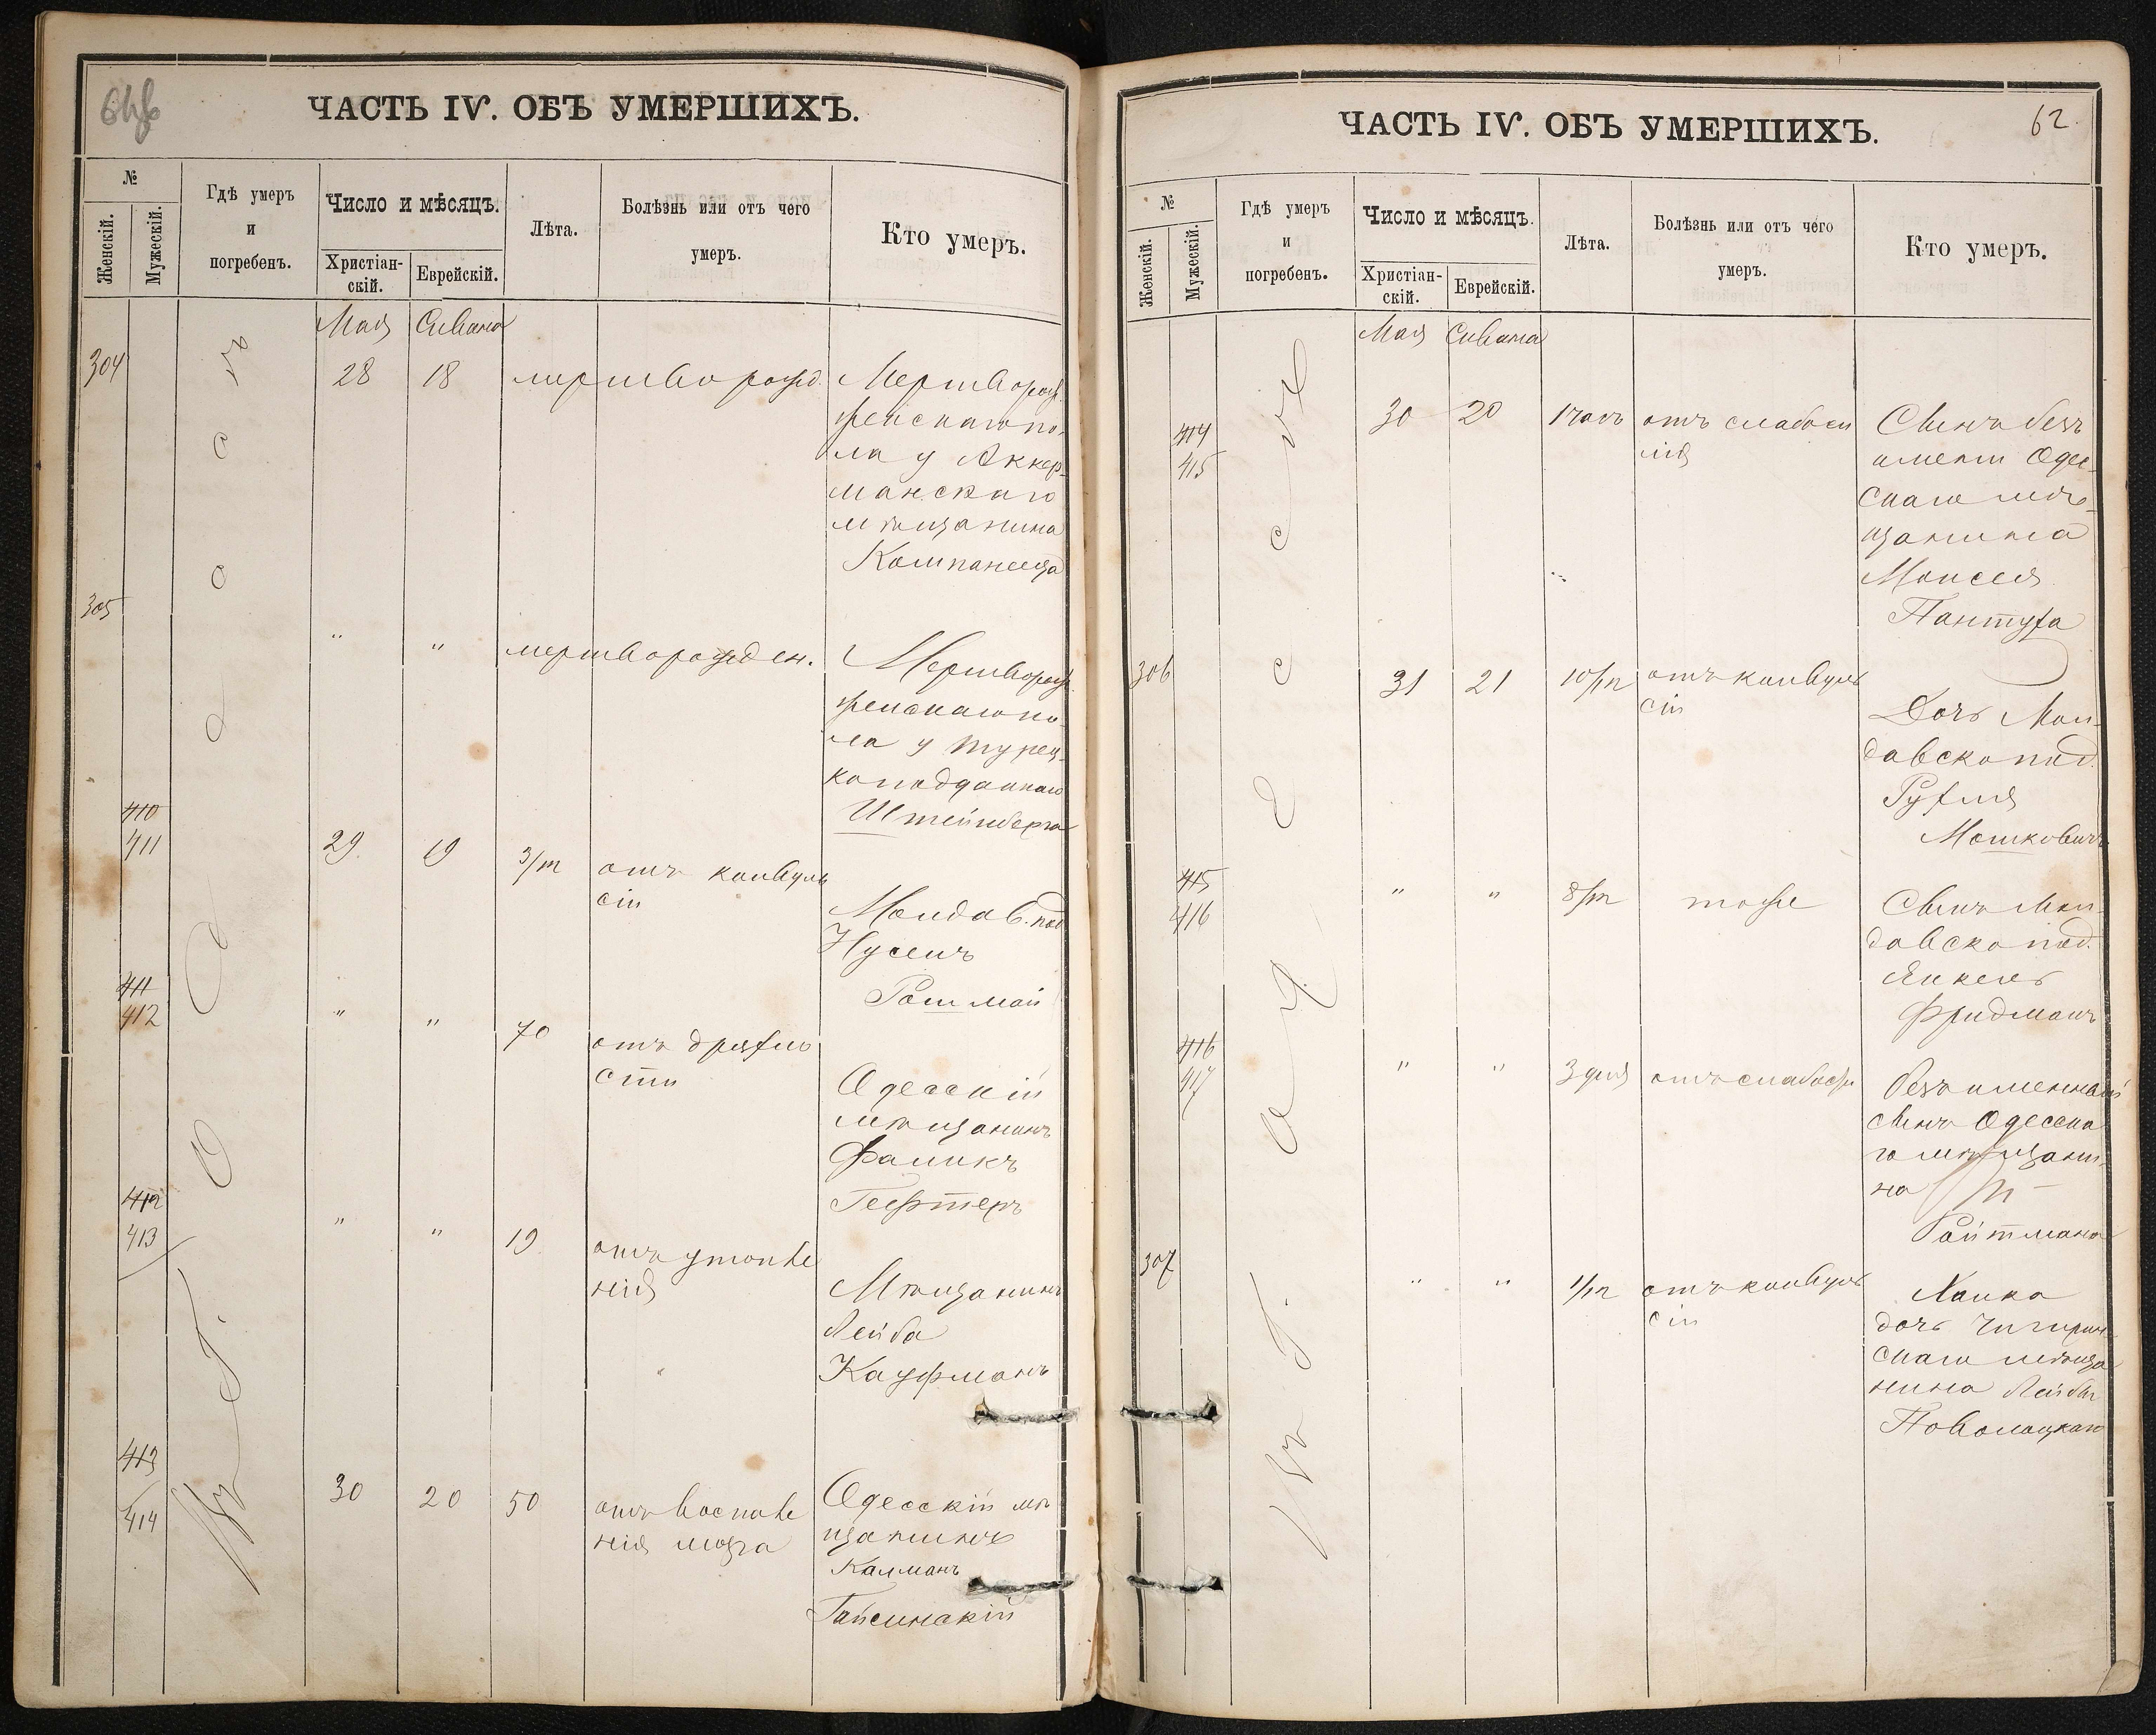 ЧАСТЬ IV. ОБЪ УМЕРШИХЪ.
№
Женскій.
Мужескій.
Гдѣ умеръ
и
погребенъ.
Число и мѣсяцъ.
Христіан-
скій.
Еврейскій.
Лѣта.
Болѣзнь или отъ чего
умеръ.
Кто умеръ.
Въ Г. Одессѣ
Мая Сивана
304 28 18 мертворожд. Мертворож.
женскаго по-
ла у Аккер-
манскаго
мѣщанина
Компанейца
305 " " мертворожден. Мертворож.
женскаго по-
ла у турец-
коподданаго
Штейнберга
410
411 29 19 3/m отъ конвуль
сіи
Молдав. под
Нусенъ
412
411 " " 70 отъ дряхло
сти
Одесскій
мѣщанинъ
Фаликъ
Гефтеръ
412
413 " " 19 отъ утопле
нія
Мѣщанинъ
Лейба
Кауфманъ
413
414 30 20 50 отъ воспале
нія мозга
Одесскій мѣ
щанинъ
Калманъ
Гайсинскій
ЧАСТЬ IV. ОБЪ УМЕРШИХЪ.
62.
№
Женскій.
Мужескій.
Гдѣ умеръ
и
погребенъ.
Число и мѣсяцъ.
Христіан-
скій.
Еврейскій.
Лѣта.
Болѣзнь или отъ чего
умеръ.
Кто умеръ.
Въ Г. Одессѣ
Мая Сивана
414
415 30 20 1 часъ отъ слабоси
лія
Сынъ безъ
имени Одес-
скаго мѣ-
щанина
Моисея
Пантуха
306 31 21 10/m отъ конвуль
сіи
Дочь Мол-
давскопод.
Рухля
Мошковичъ
415
416 " " 8/m тоже Сынъ Мол-
давскопод.
Янкель
Фридманъ
416
417 " " 3 дня отъ слабос Безименный
сынъ Одесска
го мѣщани-
на
Ройтмана
307 " " 1/m отъ конвуль
сіи
Хаика
дочь Чигирин
скаго мѣща
нина Лейбы
Поволоцкаго